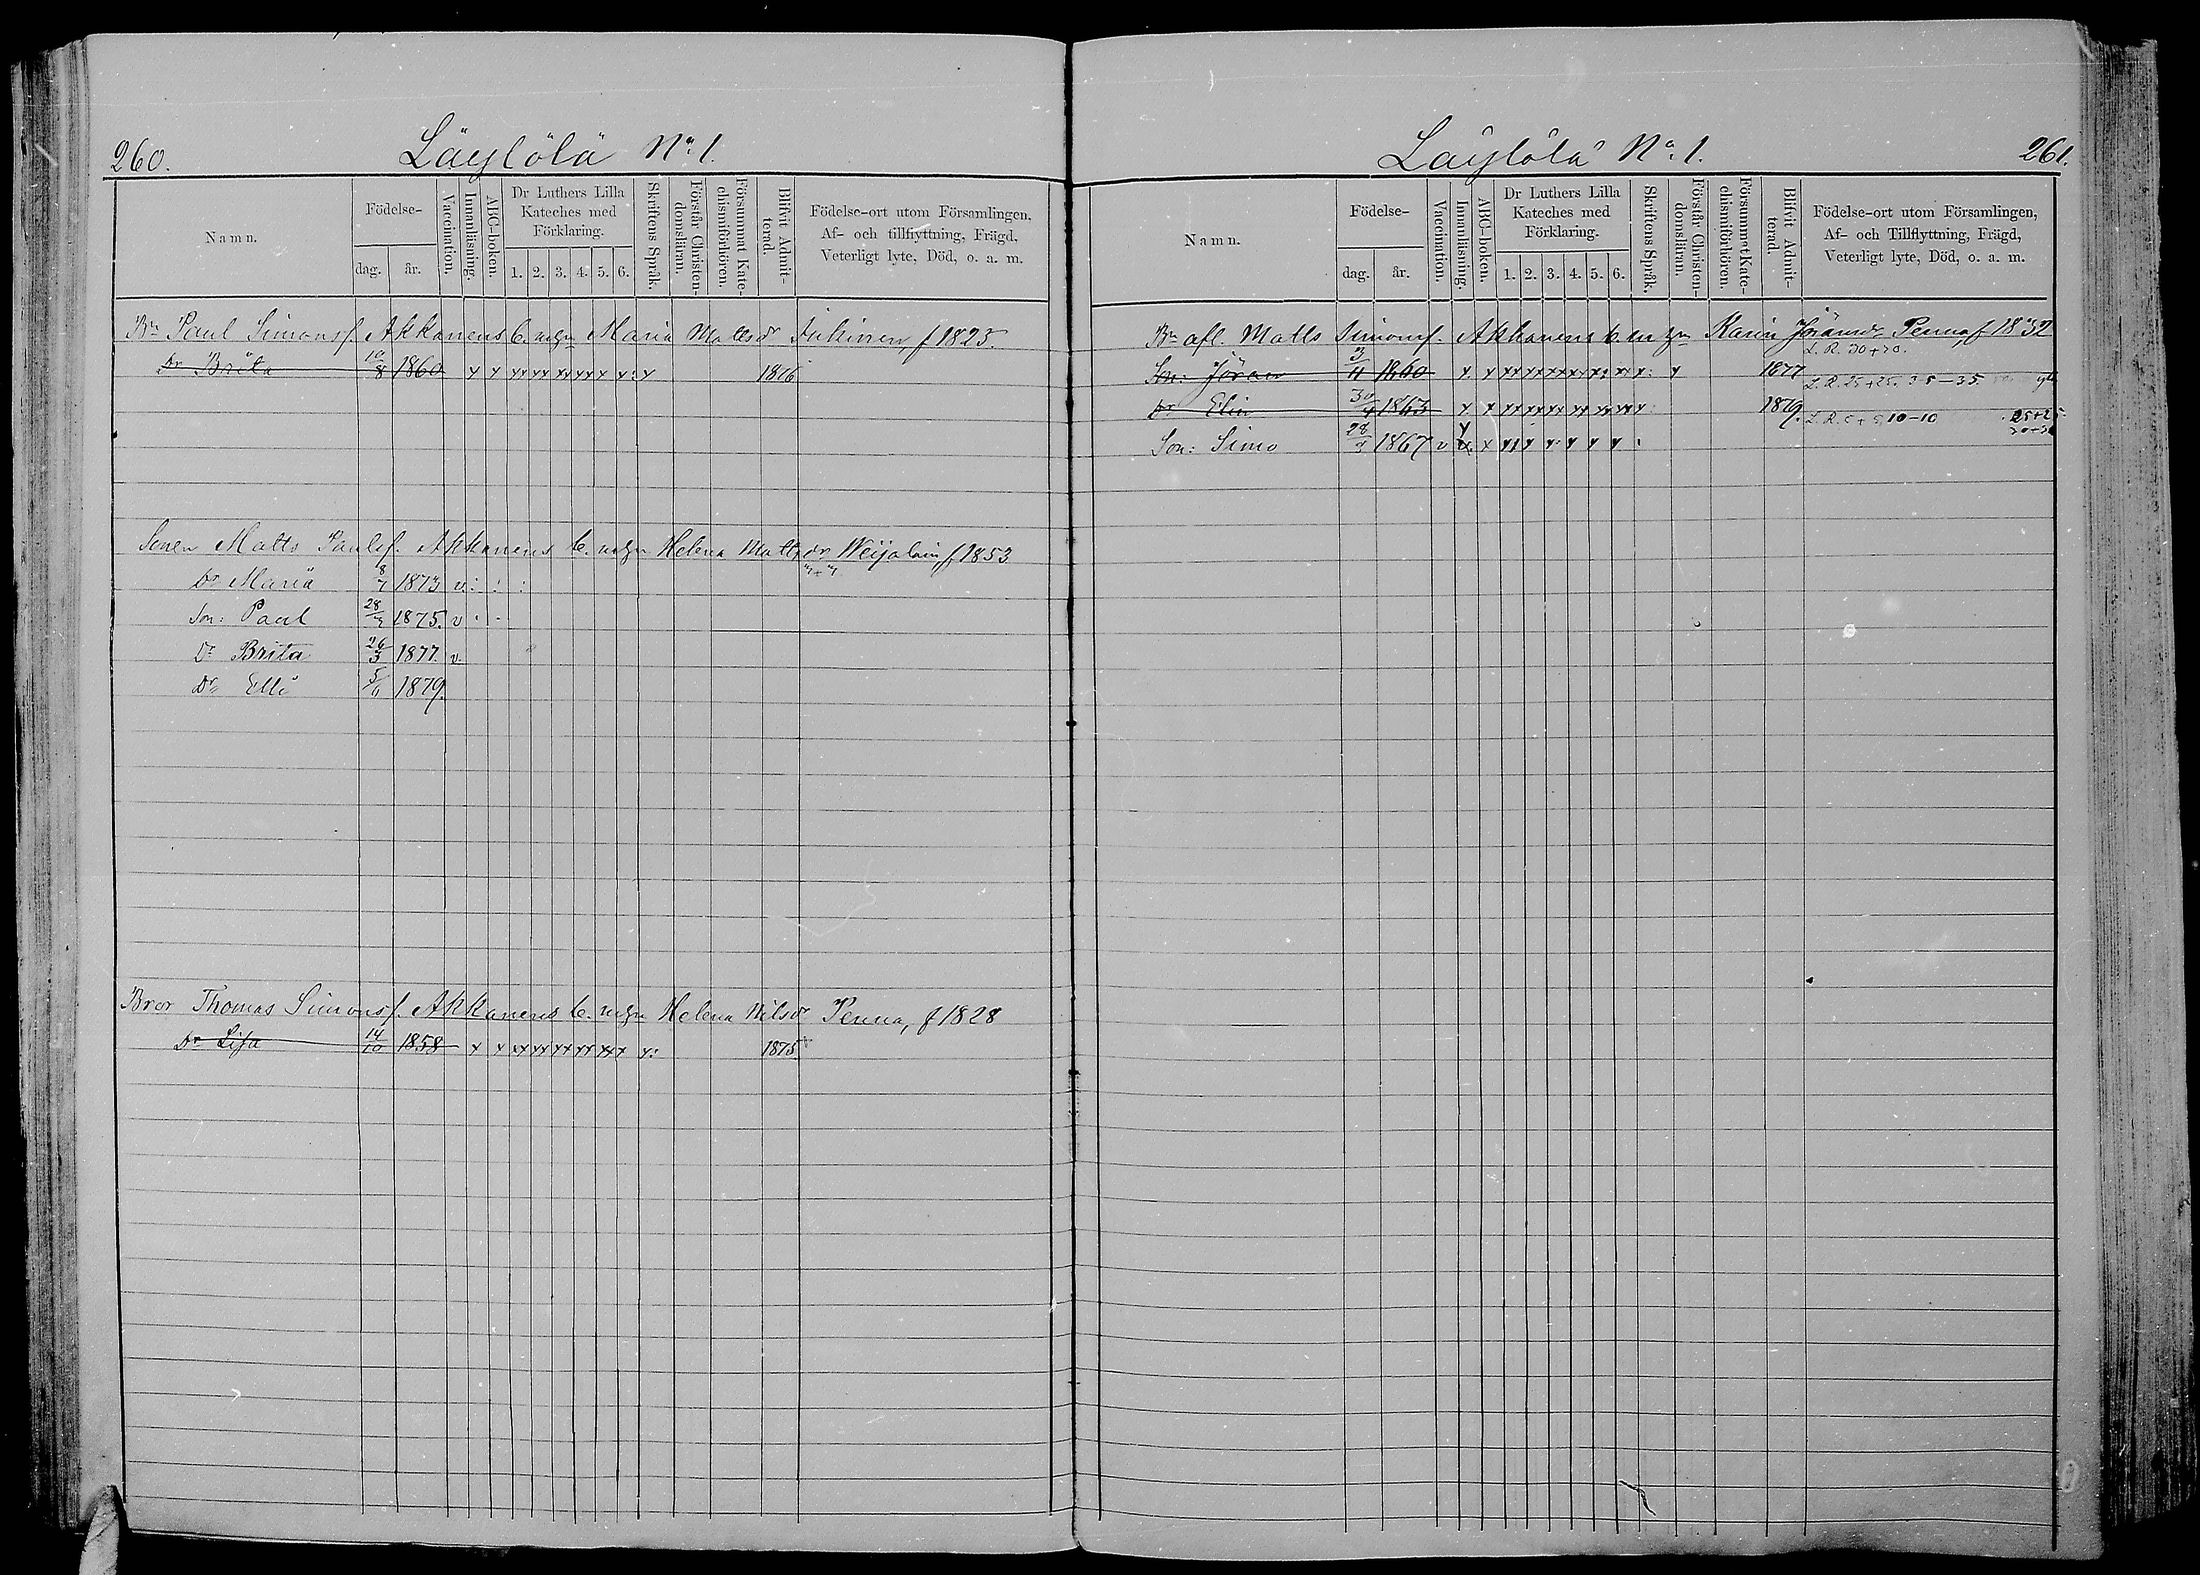 260.
Läylölä No 1.
Namn.
Födelse-
dag.
år.
Vaccination.
Innanläsning.
ABC-boken.
Dr Luthers Lilla
Kateches med
Förklaring.
1. 2. 3. 4. 5. 6.
Skriftens Språk.
Förstår Christen-
domsläran.
Försummat Kate-
chismiförhören.
Blifvit Admit-
terad.
Födelse-ort utom Församlingen,
Af- och tillflyttning, Frägd,
Veterligt lyte, Död, o. a. m.
Bn Paul Simonsf. Akkanens b. m hn Maria Mattsdr f 1823.
Dr Brita 10/8 1860 x x xx xx xx x x x: x 1876
Sonen Matts Paulsf. Akkanens b. m hn Helena Mattsdr Weijalain, f 1853
Dr Maria 1873 v : : :
Son: Paul 1875. v
Dr Brita 26/3 1877. v
Dr Elli 1879.
Bror Thomas Simonsf. Akkanens b. m hn Helena Nilsdr Penna, f 1828
Dr Lisa 14/10 1858 x x xx xx xx xx xx x x: 1875
Läylölä No 1.
261.
Namn.
Födelse-
dag.
år.
Vaccination.
Innanläsning.
ABC-boken.
Dr Luthers Lilla
Kateches med
Förklaring.
1. 2. 3. 4. 5. 6.
Skriftens Språk.
Förstår Christen-
domsläran.
Försummat Kate-
chismiförhören.
Blifvit Admit-
terad.
Födelse-ort utom Församlingen,
Af- och Tillflyttning, Frägd,
Veterligt lyte, Död, o. a. m.
Bn afl. Matts Simonsf. Akkanens b. m hn Karin Penna, f 1832
L. R. 30+70.
Son: Jöran 3/11 1860 x x xx xx xx x x 1877 L. R. 25+25. 35-35.
Dr Elin 30/4 1863 x x xx xx xx xx x 1879. 10-10 25+25
Son: Simo 28/3 1867 v x x x x x x x